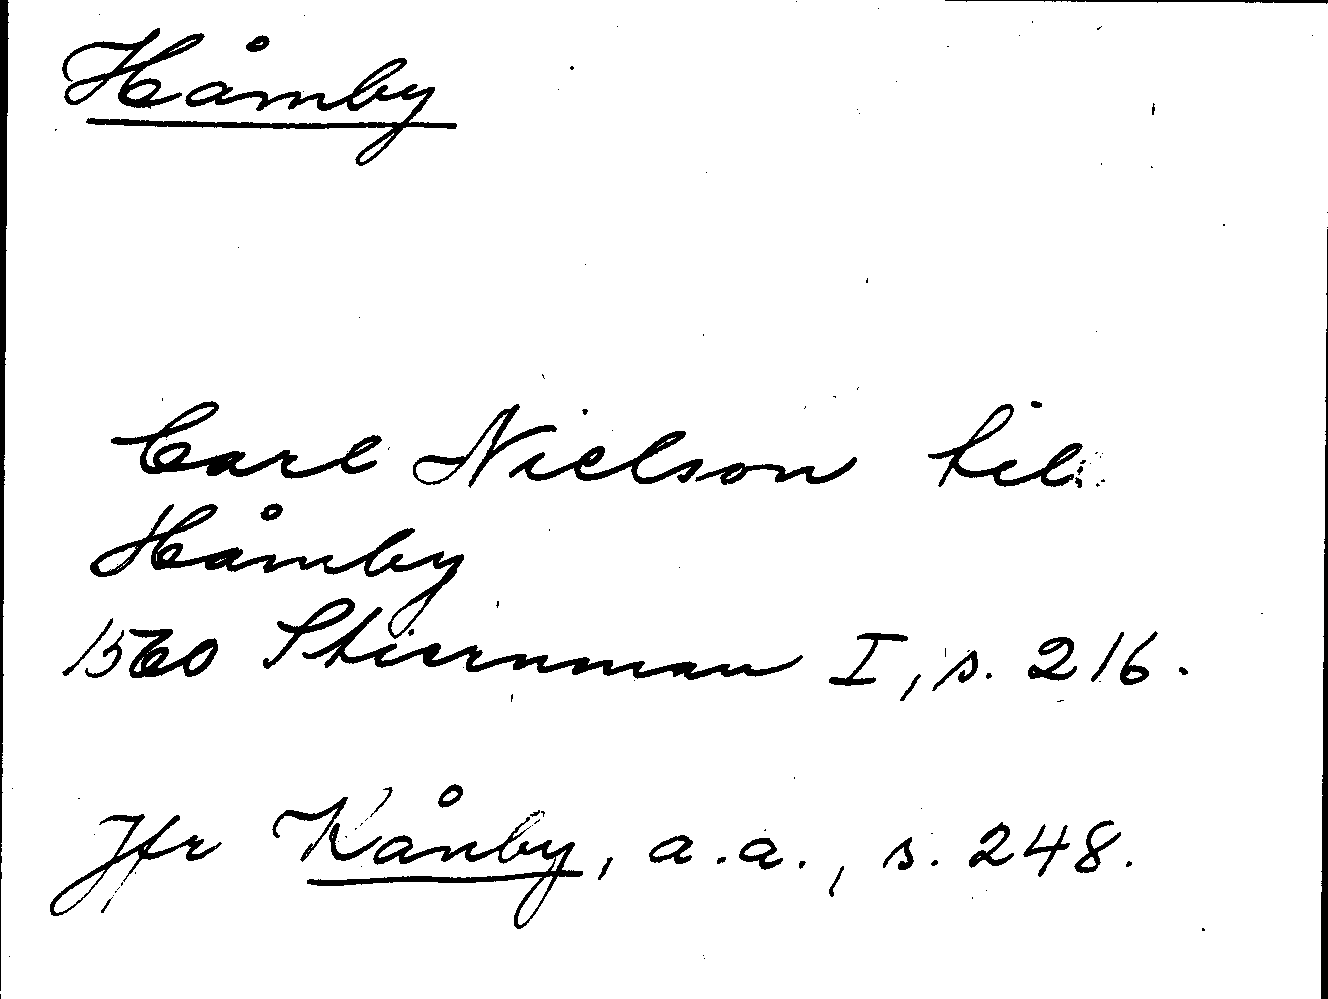 Håmby
Carl Nielson til
Håmby
1560 Stiernman I, s. 216.
Jfr Kånby, a.a., s. 248.